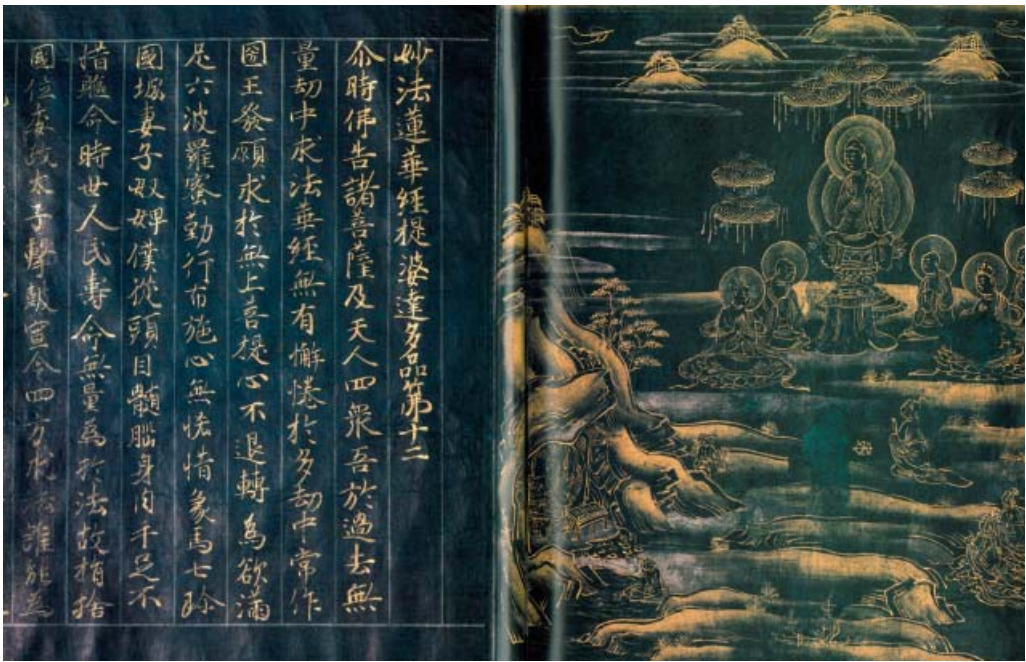 妙法蓮華經提婆達多品第十二
尒時佛告諸菩薩及天人四衆吾於過去無
量劫中求法華經無有懈惓於多劫中常作
國王發願求於無上菩提心不退轉為欲滿
足六波羅蜜勤行布施心無悋惜象馬七珎
國城妻子奴婢僕從頭目髓腦身肉手足不
惜軀命時世人民壽命無量為於法故捐捨
國位委政太子擊鼓宣令四方求法誰能為